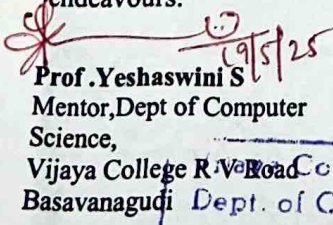 endeavours.
19/5/25
Prof.Yeshaswini S
Mentor,Dept of Computer
Science,
Vijaya College R V Road
Basavanagudi Dept. of C